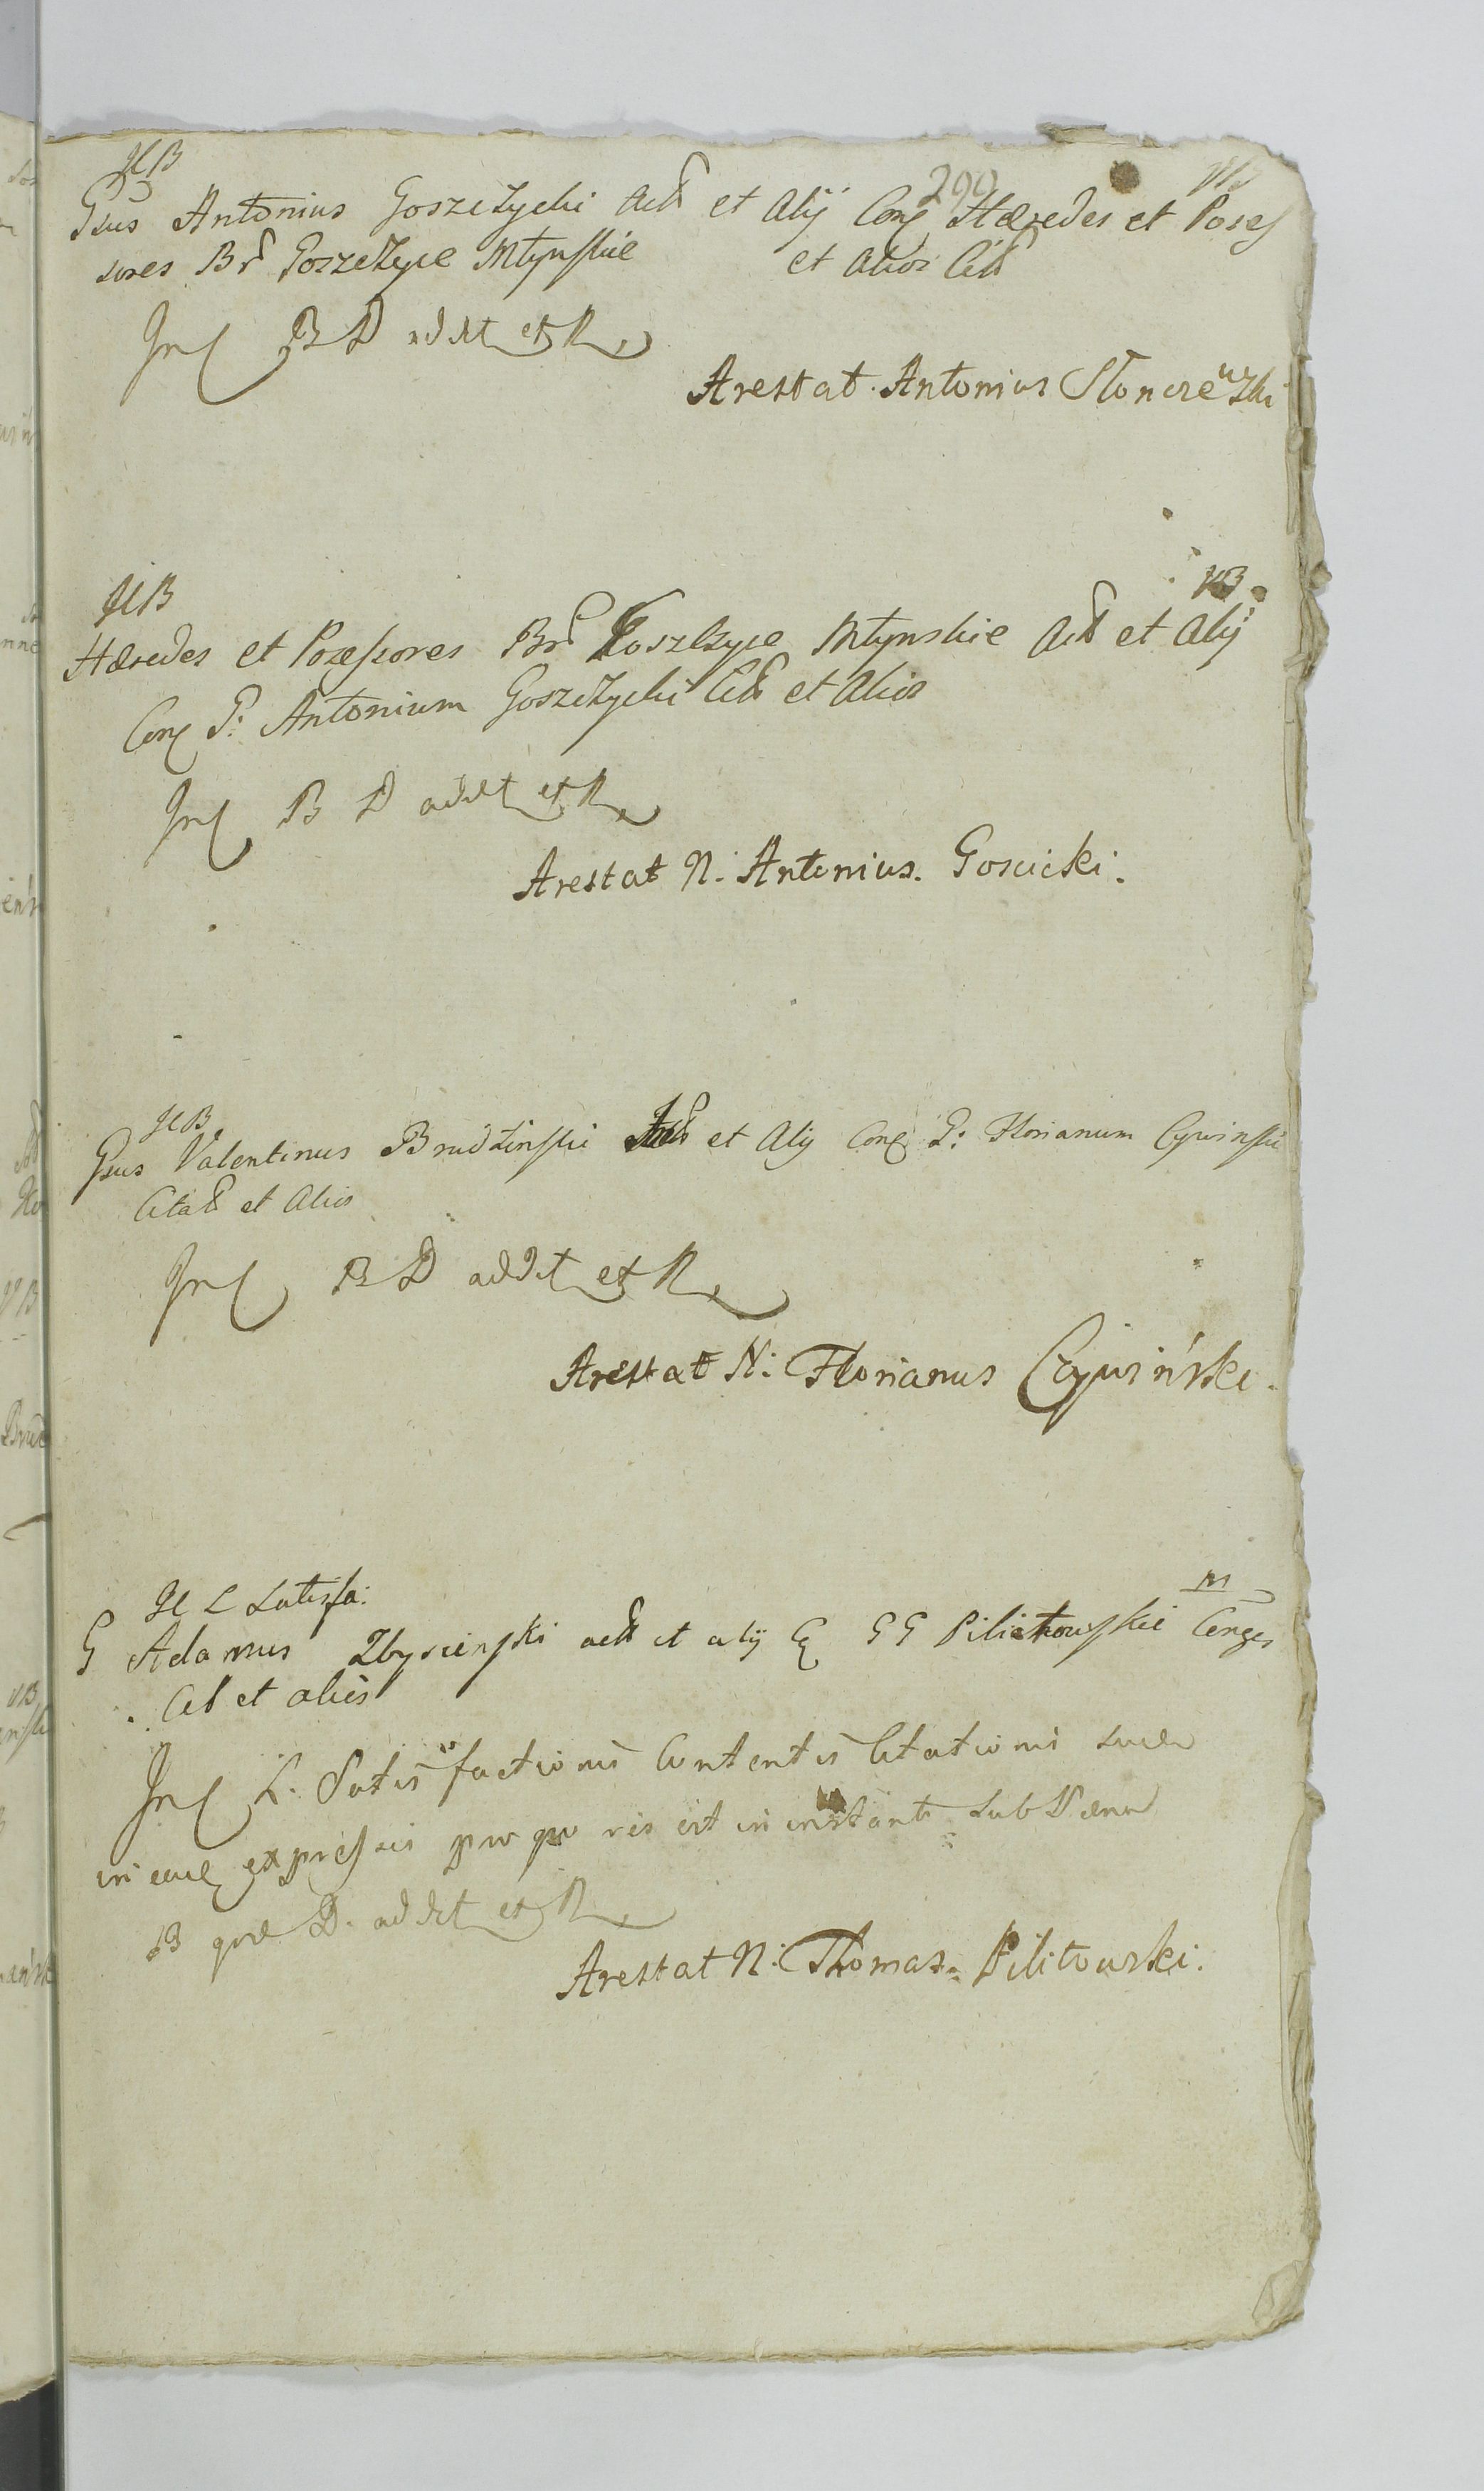 290
JlB
Gsus Antonius Goszczycki Act et Alij Con Hæredes et Posses
sores Br Goszczyce Młynskie et Alios Cit
In B D addit et R
Arestat Antonius Słonczewski
JlB VB
Hæredes et Possessores Br Goszczyce Młynskie Act et Alij
Con G: Antonium Goszczycki Cit et Alios
In B D addit et R
Arestat N: Antonius. Goscicki.
JlB
Gsus Valentinus Brudzinski Act et Alij Con G: Florianum Cywinski
Citat et Alios
In B D addit et R
Arestat N: Florianus Cywiński.
Jl L Satisfa: M
G Adamus Zbysienski act et alij C G G Pilitowskie Conges
Cit et alios
In L. Satisfactionis Contentis Citationis suæ
in eaque expressis pro quo reis est in instanti sub Pæna
B quæ D. addit et R
Arestat N: Thomas. Pilitowski.